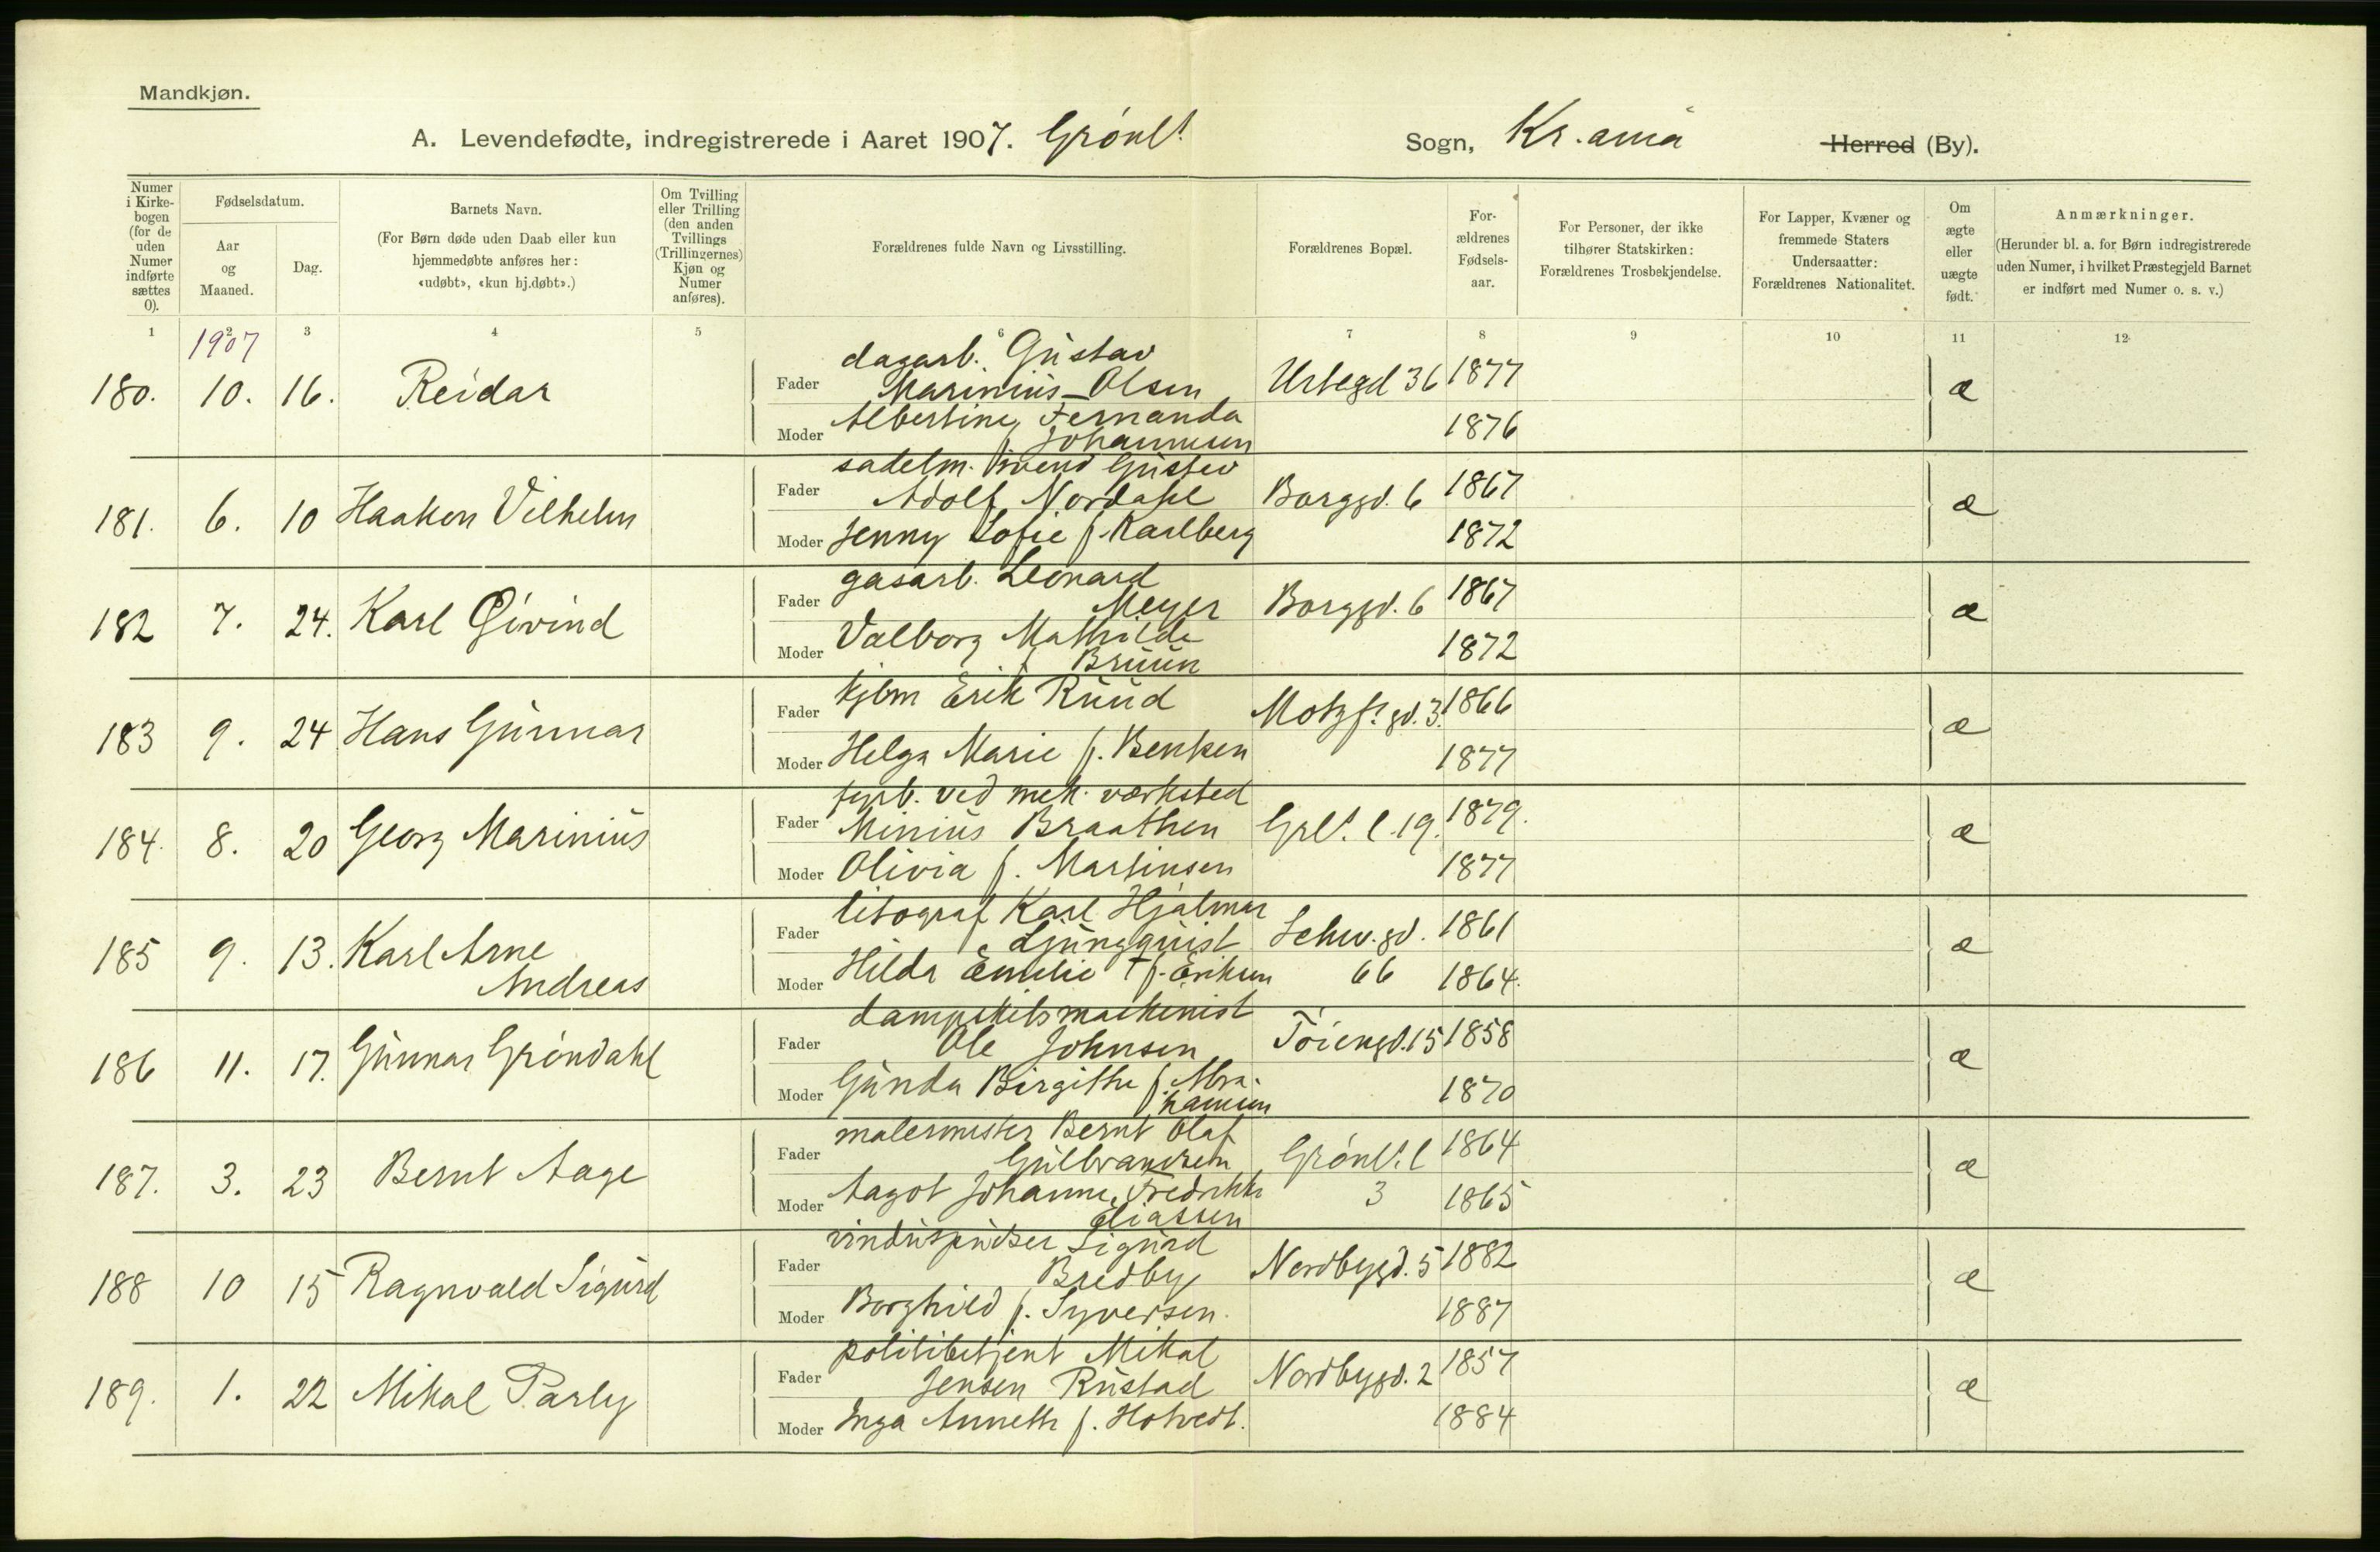 Mandkjøn.
A. Levendefødte, indregistrerede i Aaret 1907. Grønl. Sogn, Kr.ania Herred (By).
Numer i Kirkebogen (for de uden Numer indførte sættes 0).
Fødselsdatum.
Aar og Maaned.
Dag.
Barnets Navn.
(For Børn døde uden Daab eller kun hjemmedøbte anføres her: «udøbt», «kun hj.døbt».)
Om Tvilling eller Trilling (den anden Tvillings (Trillingernes) Kjøn og Numer anføres).
Forældrenes fulde Navn og Livsstilling.
Forældrenes Bopæl.
Forældrenes Fødselsaar.
For Personer, der ikke tilhører Statskirken: Forældrenes Trosbekjendelse.
For Lapper, Kvæner og fremmede Staters Undersaatter: Forældrenes Nationalitet.
Om ægte eller uægte født.
Anmærkninger.
(Herunder bl. a. for Børn indregistrerede uden Numer, i hvilket Præstegjeld Barnet er indført med Numer o. s. v.)
1 2 3 4 5 6 7 8 9 10 11 12
1907
180. 10. 16. Reidar
Fader dagarb. Gustav
Marinius Olsen Urtegd 36 1877 æ
Moder Albertine Fernanda
Johannesen 1876
181. 6. 10 Haakon Vilhelm
Fader sadelm. Svend Gustav
Adolf Nordahl Borggd. 6 1867 æ
Moder Jenny Sofie f. Karlberg 1872
182 7. 24. Karl Øivind
Fader gasarb. Leonard
Meyer Borggd. 6 1867 æ
Moder Valborg Mathilde
f. Bruun 1872
183 9. 24 Hans Gunnar
Fader kjbm Erik Ruud Motzf. gd. 3. 1866 æ
Moder Helga Marie f. Benken 1877
184. 8. 20 Georg Marinius
Fader ved mek. værksted
Minius Braathen Grl. l. 19. 1879. æ
Moder Olivia f. Martinsen 1877
185 9. 13. Karl Arne
Andreas
Fader litograf Karl Hjalmar
Ljungquist Schw. gd. 1861 æ
Moder Hilda Emilie f. Eriksen 66 1864.
186 11. 17. Gunnar Grøndahl
Fader dampskibsmaskinist
Ole Johnsen Tøiengd. 15 1858 æ
Moder Gunda Birgithe f. Abra-
hamsen 1870
187. 3. 23 Bernt Aage
Fader malermester Bernt Olaf
Gulbrandsen Grønl. l 1864 æ
Moder Aagot Johanne Fredrikke 3 1865
Eliassen
188 10 15 Ragnvald Sigurd
Fader vinduspudser Sigurd
Bredby Nordbygd. 5 1882 æ
Moder Borghild f. Syversen. 1887
189. 1. 22 Mikal Parly
Fader politibetjent Mikal
Jensen Rustad Nordbygd. 2 1857 æ
Moder Inga Annette f. Hotvedt. 1884